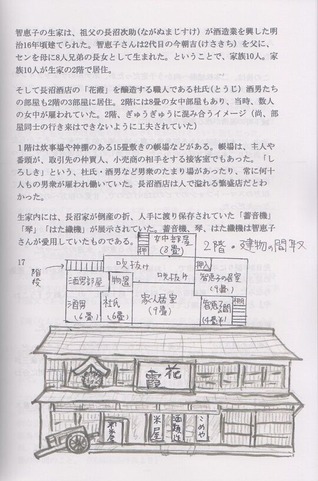 智恵子の生家は、祖父の長沼次助(ながぬまじすけ)が酒造業を興した明
治16年頃建てられた。智恵子さんは2代目の今朝吉(けさきち)を父に、
センを母に8人兄弟の長女として生まれた。ということで、家族10人。家
族10人が生家の2階で居住。
そして長沼酒店の「花霞」を醸造する職人である杜氏(とうじ)酒男たち
の部屋も2階の3部屋に居住。2階には8畳の女中部屋もあり、当時、数人
の女中が雇われていた。2階、ぎゅうぎゅうに混み合うイメージ(尚、部
屋同士の行き来はできないように工夫されていた)
1階は炊事場や神棚のある15畳敷きの帳場などがある。帳場は、主人や
番頭が、取引先の仲買人、小売商の相手をする接客室でもあった。「し
ろしき」という、杜氏・酒男など男衆のたまり場があったり、常に何十
人もの男衆が雇われ働いていた。長沼酒店は人で溢れる繁盛店だとわ
かった。
生家内には、長沼家が倒産の折、人手に渡り保存されていた「蓄音機」
「琴」「はた織機」が展示されていた。蓄音機、琴、はた織機は智恵子
さんが愛用していたものである。
押入
女中部屋
(8畳)
2階・建物の間取
17
階段
吹き抜け
吹き抜け
押入
酒男部屋
物置
智恵子の居室
(9畳)
酒男
(6畳)
杜氏
(6畳)
家人居室
(9畳)
智恵子
(4畳半)
花
霞
米屋
酒
こめや